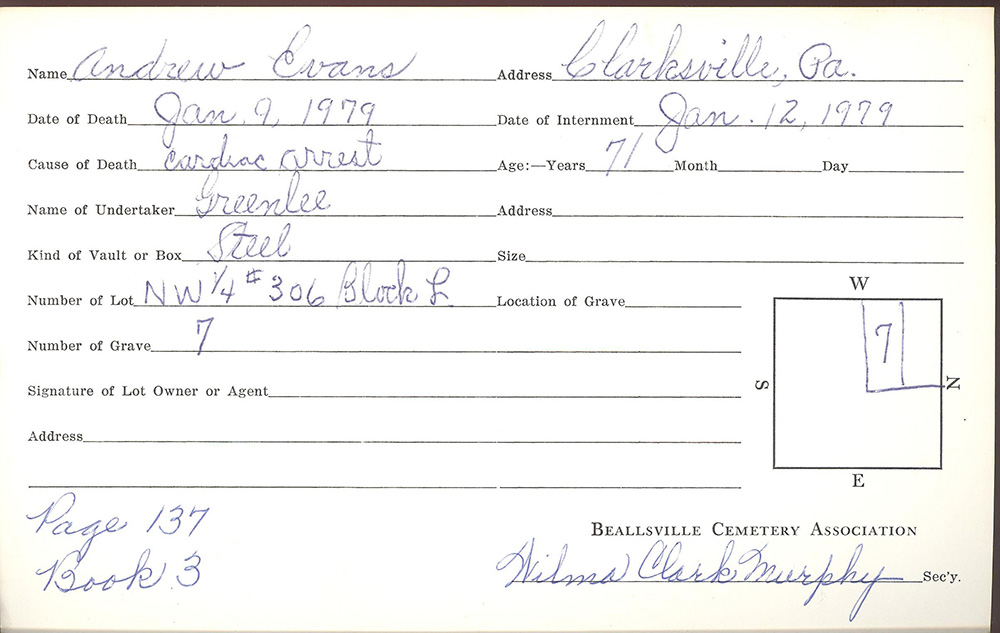 Name Andrew Evans Address Clarksville, Pa.
Date of Death Jan. 9, 1979 Date of Internment Jan. 12, 1979
Cause of Death cardiac arrest Age:—Years 71 Month Day
Name of Undertaker Greenlee Address
Kind of Vault or Box Steel Size
Number of Lot NW 1/4 # 306 Block L Location of Grave
W
Number of Grave 7
7
S N
Signature of Lot Owner or Agent
Address
E
Page 137
Book 3
BEALLSVILLE CEMETERY ASSOCIATION
Wilma Clark Murphy Sec'y.